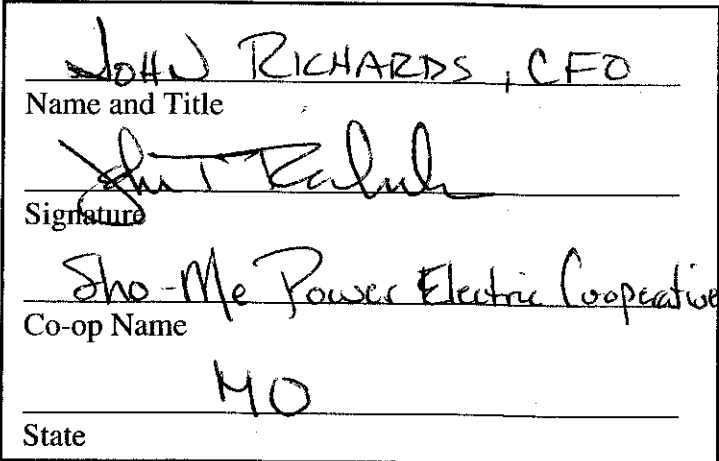 JOHN RICHARDS, CFO
Name and Title
John T Richards
Signature
Sho-Me Power Electric Cooperative
Co-op Name
MO
State